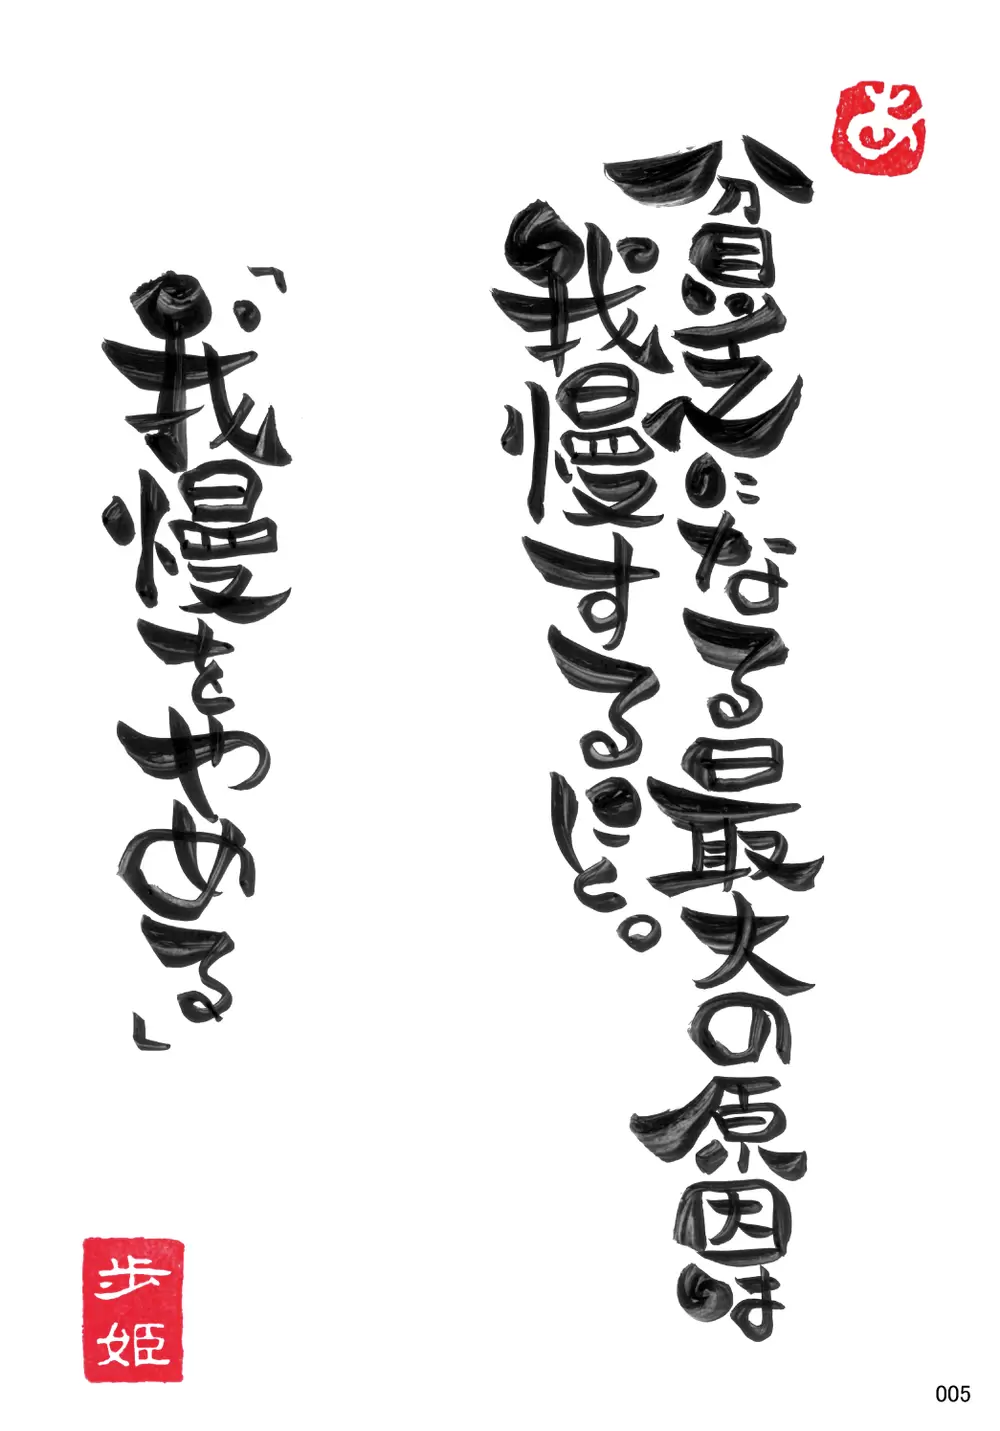 あ
貧乏になる最大の原因は
我慢すること。
「我慢をやめる」
歩
姫
005